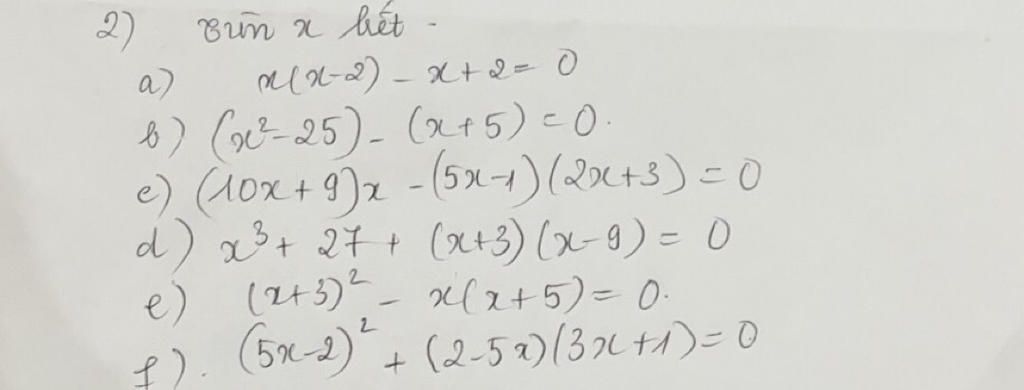 2) Tìm x biết.
a) x(x-2) - x + 2 = 0
b) (x²-25) - (x+5) = 0.
c) (10x+9)x - (5x-1)(2x+3) = 0
d) x³ + 27 + (x+3)(x-9) = 0
e) (x+3)² - x(x+5) = 0.
f). (5x-2)² + (2-5x)(3x+1) = 0